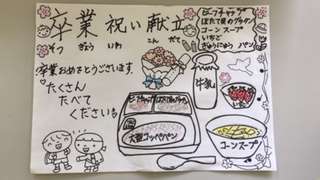 卒業祝い献立
そつ ぎょう いわ こん だて
卒業おめでとうございます。
たくさん
たべて
ください。
コーンスープ
いちご
ぎゅうにゅう パン
牛乳
大型コッペパン
コーンスープ